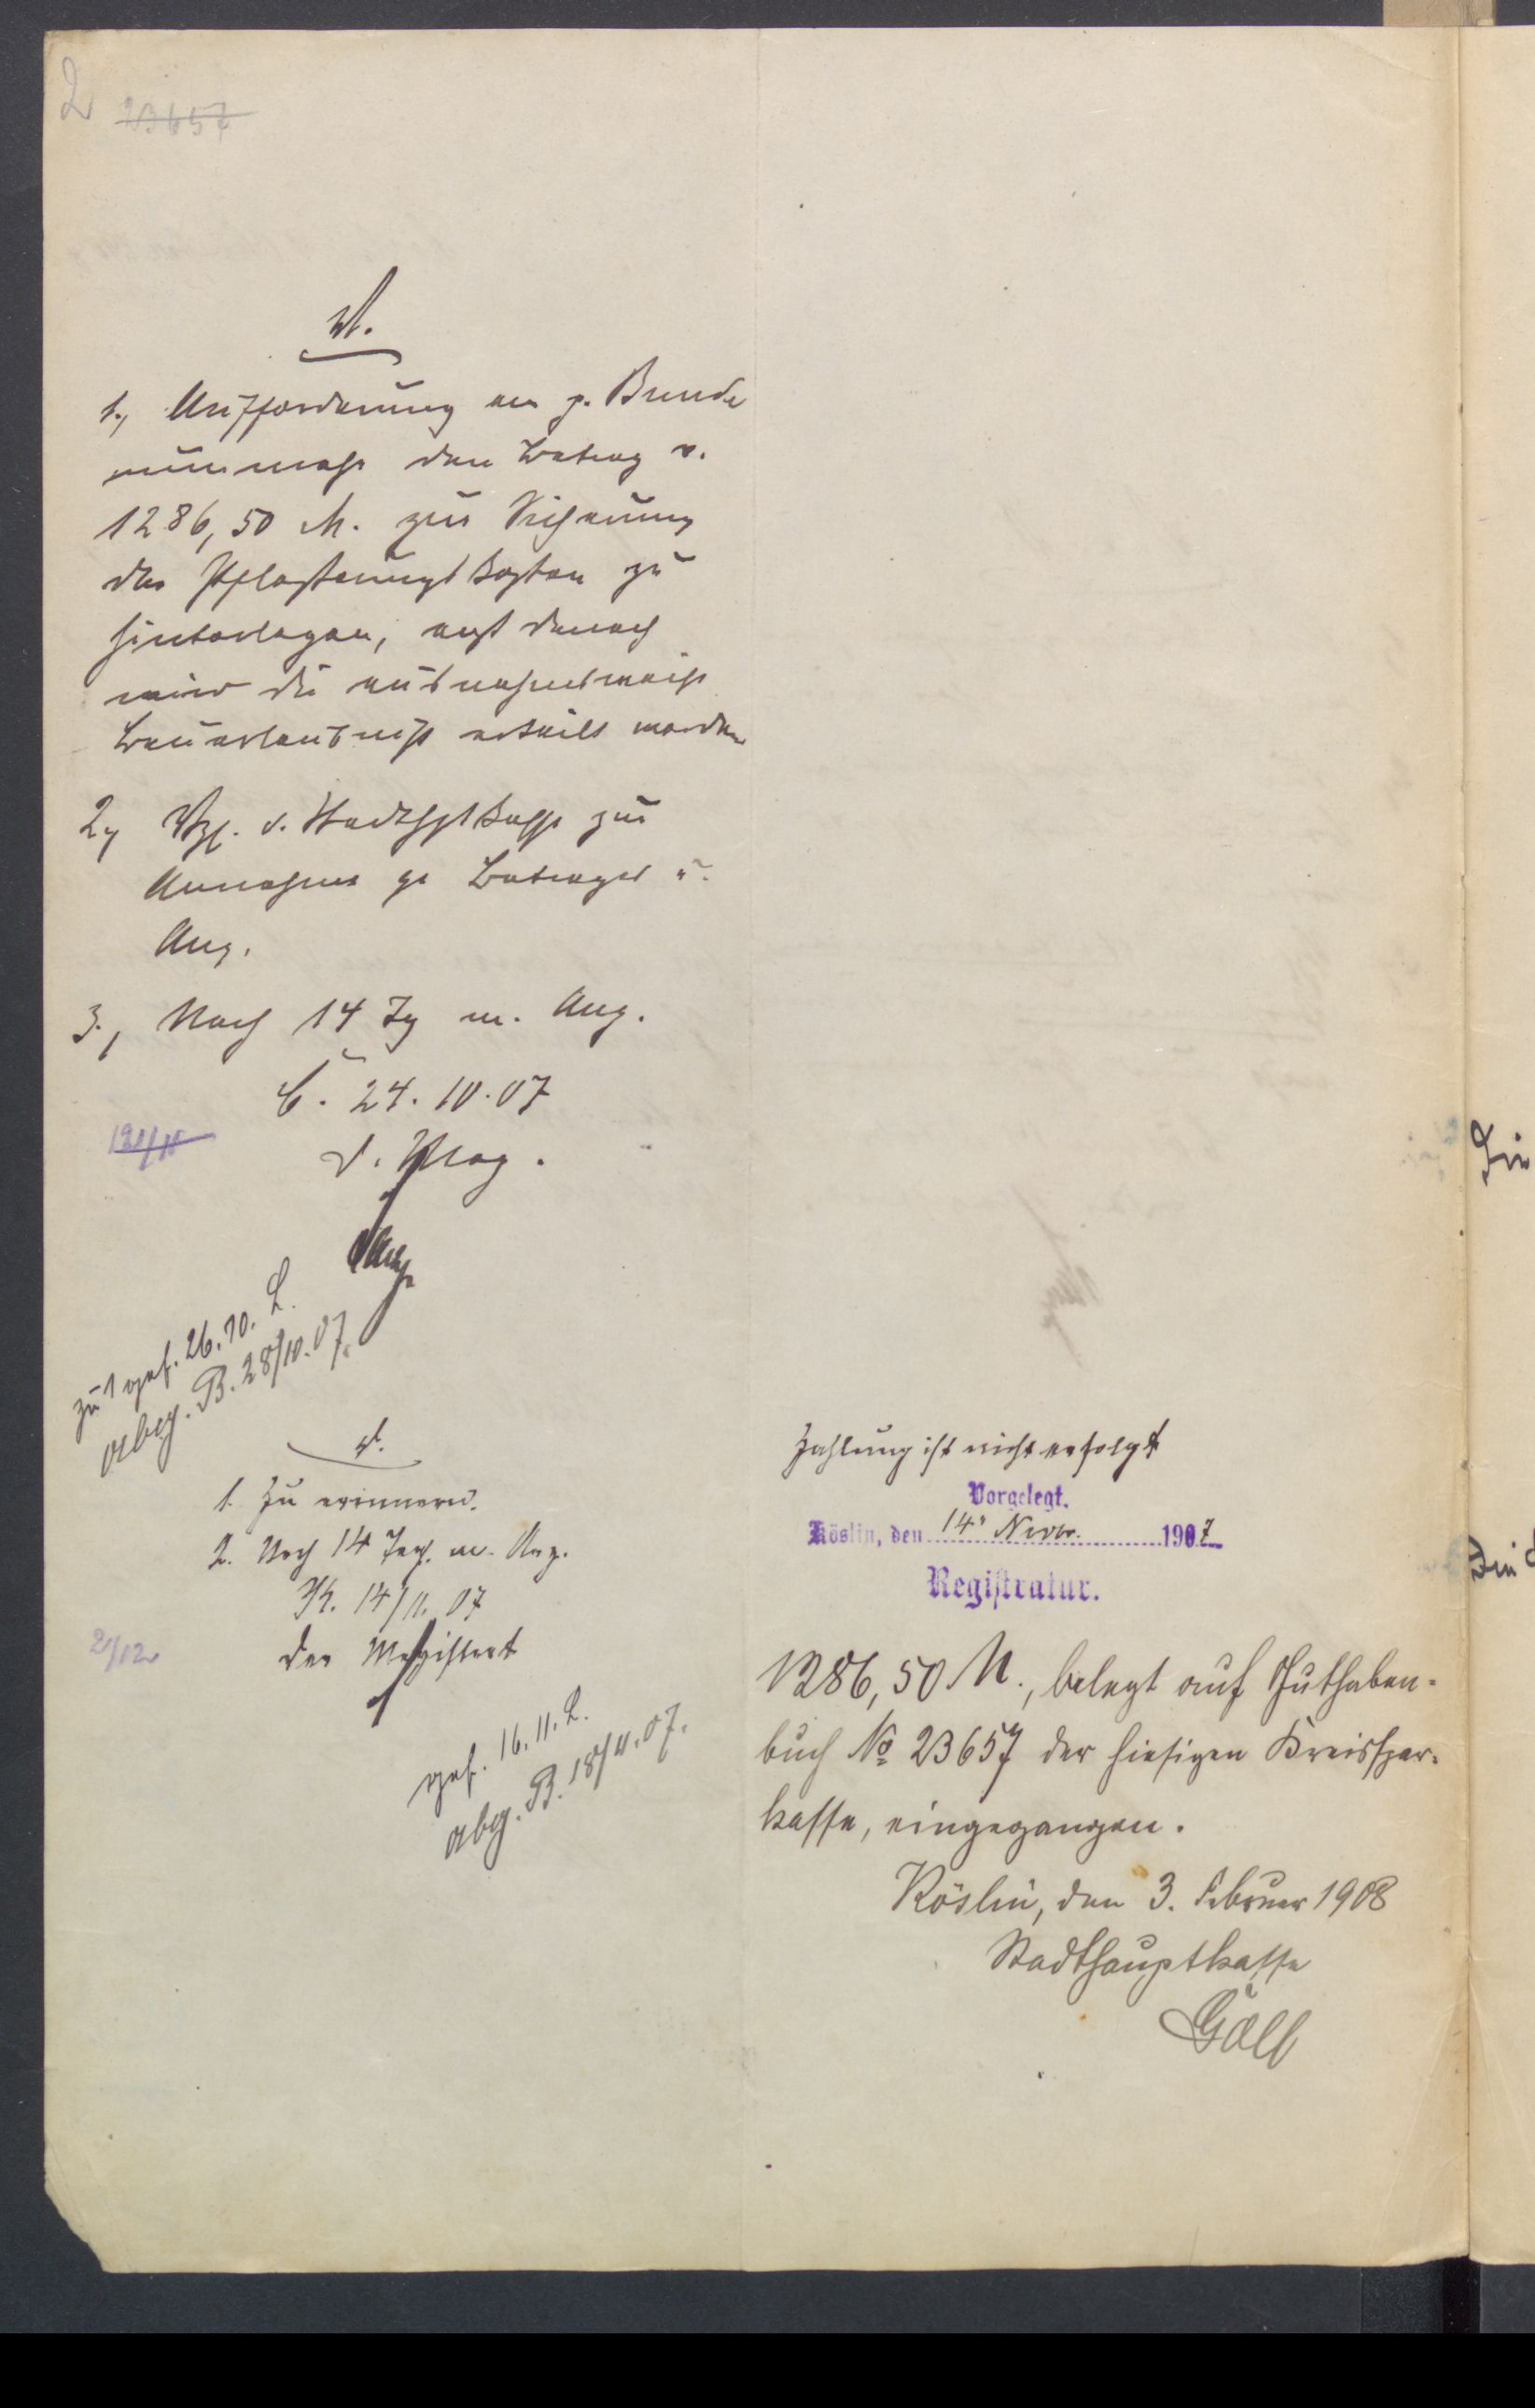 2 23657
V.
1., Aufforderung an p. Bunde
nunmehr den Betrag v.
1286,50 M. zur Sicherung
der Pflasterungskosten zu
hinterlegen, erst danach
wird die ausnahmsweise
Bauerlaubniß erteilt werden
2., Vfg. d. Stadthptkasse zur
Annahme ge Betrages u.
Anz.
3., Nach 14 Tg m. Anz.
C. 24.10.07
D. Mag.
zu 1 gef. 26.10. L.
abg. B. 28/10.07.
V.
1. Zu erinnern.
2. Nach 14 Tag. m. Anz.
14/11.07
Der Magistrat
21/12
gef. 16.11. L.
abg. B. 18/11.07.
Zahlung ist nicht erfolgt
Vorgelegt.
Köslin, den 14. Novbr. 1907
Registratur.
1286,50 M., belegt auf Guthaben-
buch No 23657 der hiesigen Kreisspar-
kasse, eingegangen.
Köslin, den 3. Februar 1908
Stadthauptkasse
Göll
Die